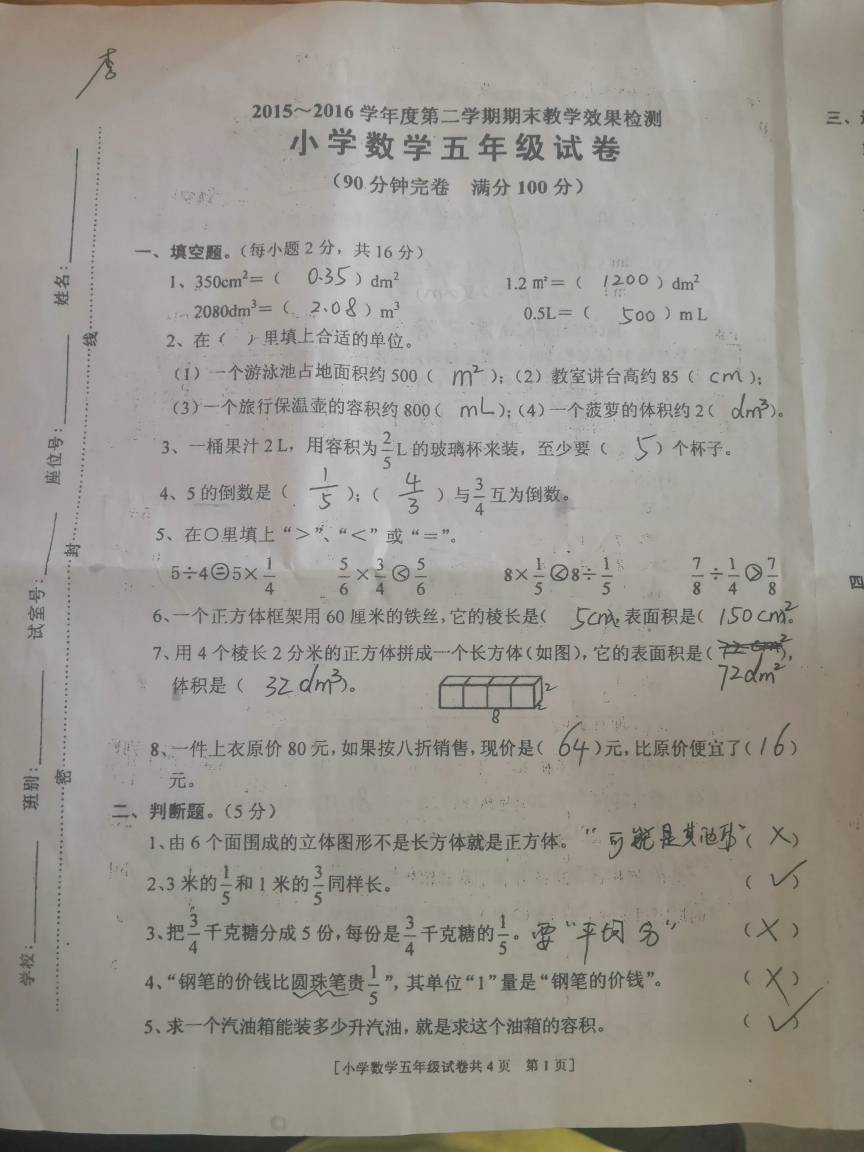 李
2015～2016 学年度第二学期期末教学效果检测
小学数学五年级试卷
（90 分钟完卷　满分 100 分）
一、填空题。（每小题 2 分，共 16 分）
1、350cm²＝（ 0.35 ）dm²　1.2 m²＝（ 1200 ）dm²
2080dm³＝（ 2.08 ）m³　0.5L＝（ 500 ）mL
2、在（　）里填上合适的单位。
（1）一个游泳池占地面积约 500（ m² ）；（2）教室讲台高约 85（ cm ）；
（3）一个旅行保温壶的容积约 800（ mL ）；（4）一个菠萝的体积约 2（ dm³ ）。
3、一桶果汁 2 L，用容积为 2/5 L 的玻璃杯来装，至少要（ 5 ）个杯子。
4、5 的倒数是（ 1/5 ）；（ 4/3 ）与 3/4 互为倒数。
5、在○里填上“＞”、“＜”或“＝”。
5÷4＝5×1/4　5/6×3/4＜5/6　8×1/5＜8÷1/5　7/8÷1/4＞7/8
6、一个正方体框架用 60 厘米的铁丝，它的棱长是（ 5cm ），表面积是（ 150cm² ）。
7、用 4 个棱长 2 分米的正方体拼成一个长方体（如图），它的表面积是（ 72cm² ），
72dm²
体积是（ 32dm³ ）。
2
2
8
8、一件上衣原价 80 元，如果按八折销售，现价是（ 64 ）元，比原价便宜了（ 16 ）
元。
二、判断题。（5 分）
1、由 6 个面围成的立体图形不是长方体就是正方体。“可能是其他形”（ × ）
2、3 米的 1/5 和 1 米的 3/5 同样长。（ √ ）
3、把 3/4 千克糖分成 5 份，每份是 3/4 千克糖的 1/5。要“平均分”（ × ）
4、“钢笔的价钱比圆珠笔贵 1/5”，其单位“1”量是“钢笔的价钱”。（ × ）
5、求一个汽油箱能装多少升汽油，就是求这个油箱的容积。（ √ ）
［小学数学五年级试卷共 4 页　第 1 页］
学校：
班别：
试室号：
座位号：
姓名：
密
封
线
三、
四